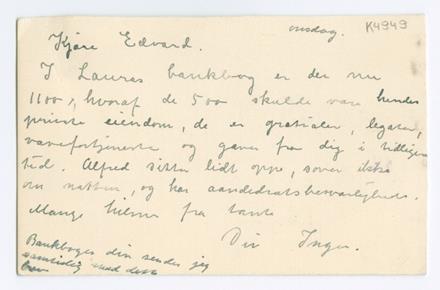 onsdag.
K4949
Kjære Edvard.
I Lauras bankbog er der nu
1100,, hvoraf de 500 skulde være hendes
private eiendom, de er gratialer, legater,
vævefortjeneste og gaver fra dig i tidligere
tid. Alfred sitter lidt oppe, sover ikke
om natten, og har aandedrætsbesværligheder.
Mange hilsner fra tante
Din Inger.
Bankbogen din sender jeg
samtidig med dette